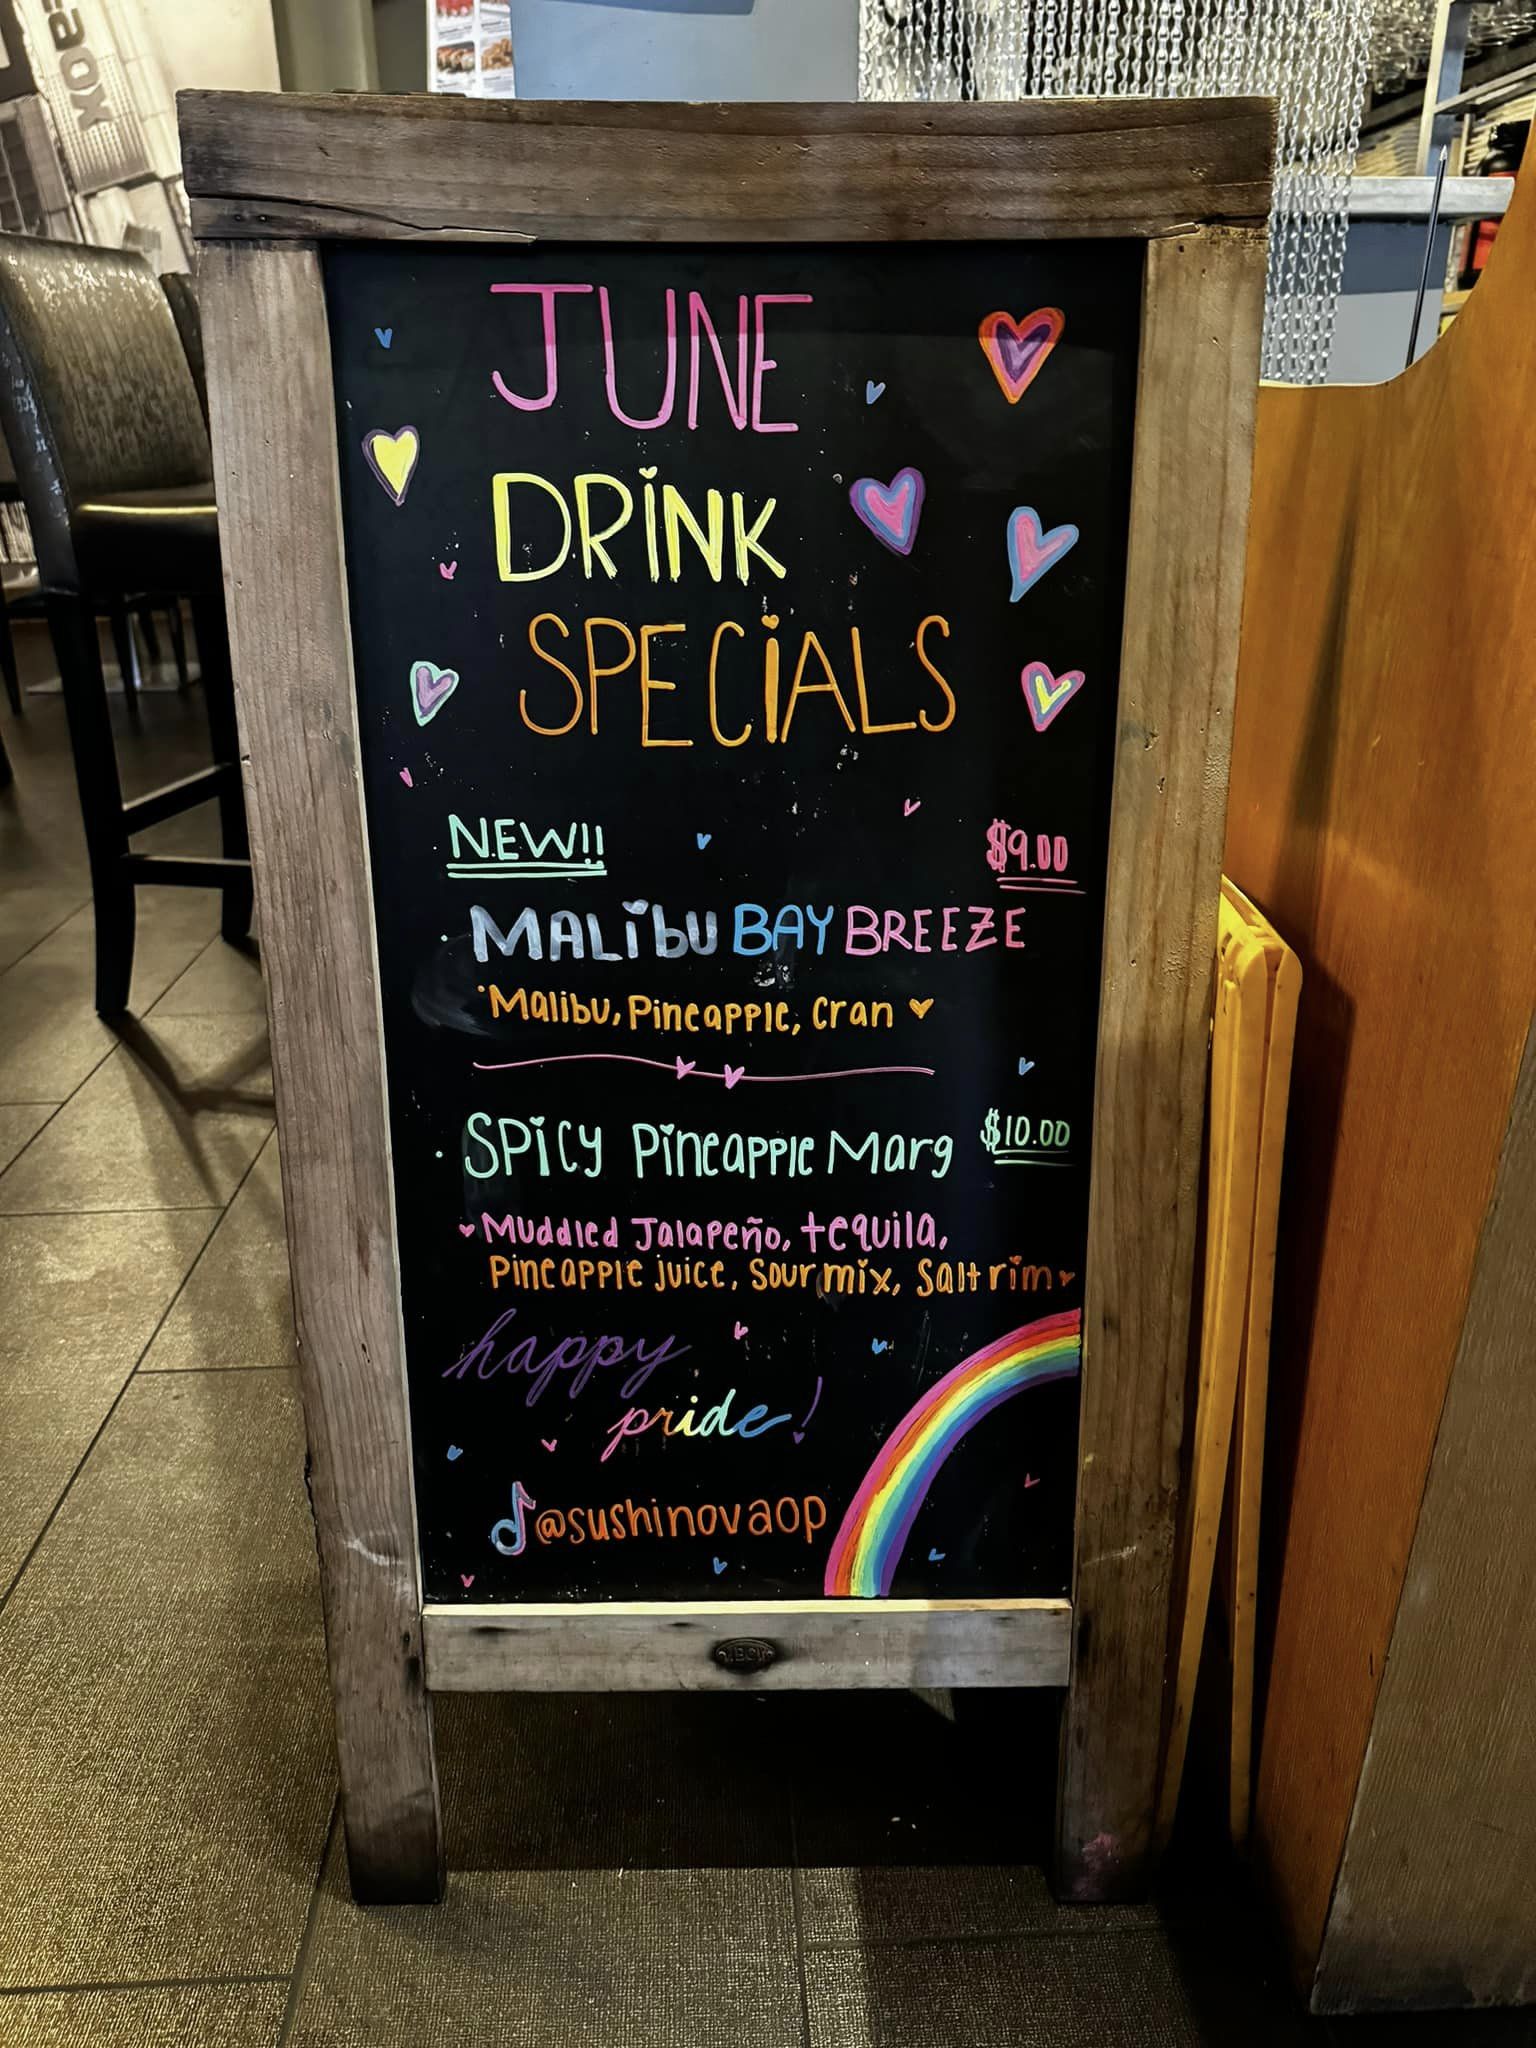 JUNE
DRINK
SPECIALS
NEW!!
$9.00
MALiBU BAY BREEZE
Malibu, Pineapple, Cran
SPiCY Pineapple Marg
$10.00
Muddled Jalapeño, tequila,
Pineapple juice, Sour mix, Salt rim
happy
pride!
@sushinovaop